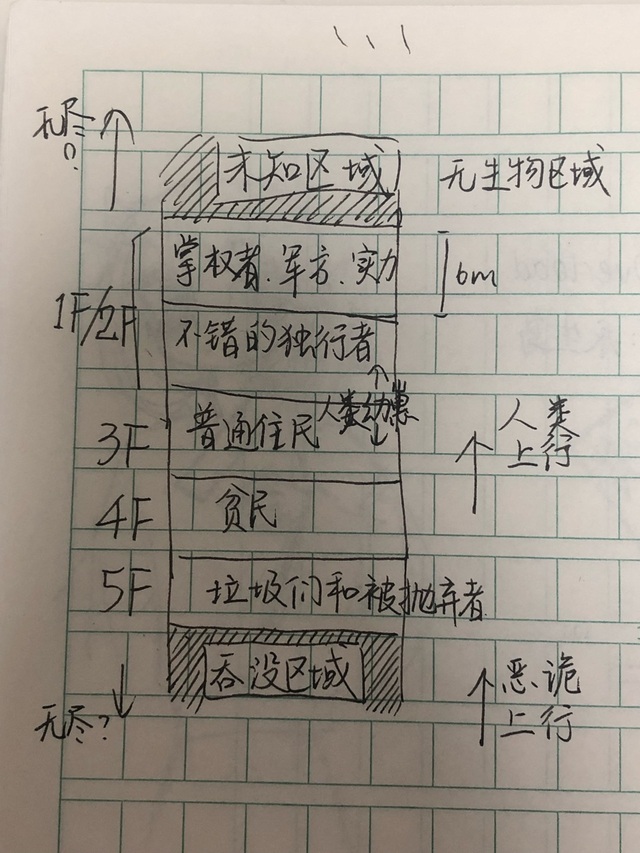 无尽?
未知区域
无生物区域
掌权者、军方、实力
6m
1F/2F
不错的独行者
人类幼崽
3F
普通住民
人类
上行
4F
贫民
5F
垃圾们和被抛弃者
吞没区域
恶诡
上行
无尽?